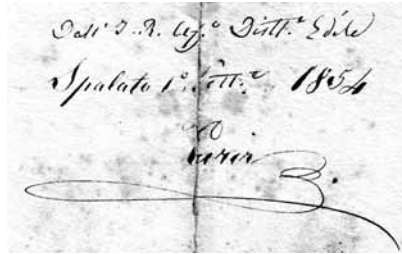 Dall' I. R. Uff.o Distt.e Edile
Spalato 1.o Sett.e 1854